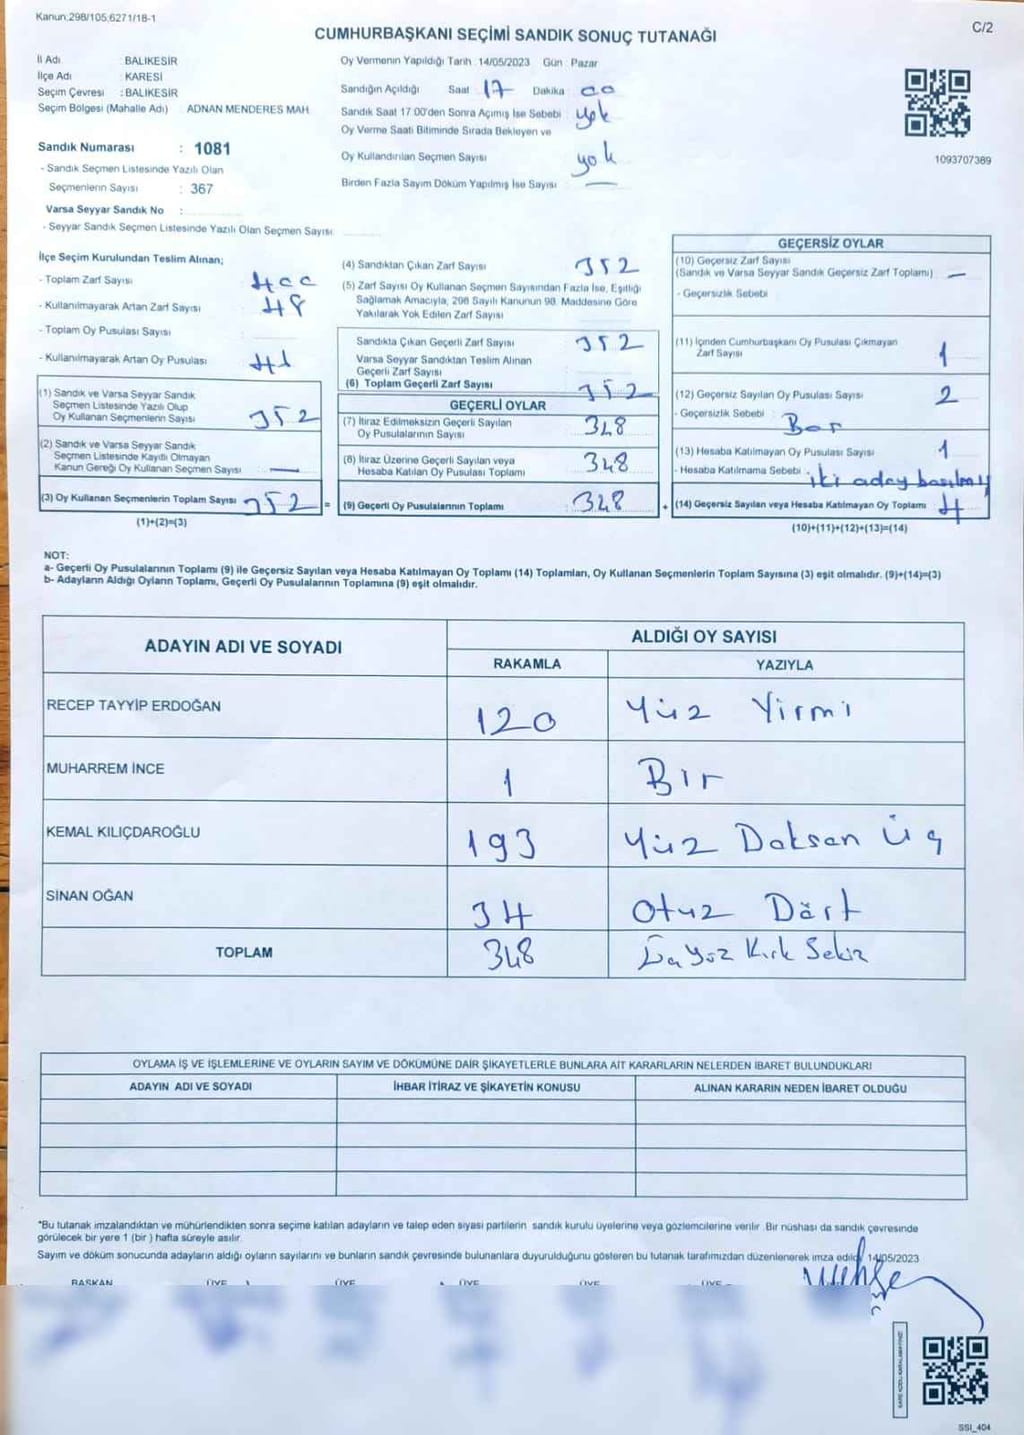 Kanun:298/105;6271/18-1
C/2
CUMHURBAŞKANI SEÇİMİ SANDIK SONUÇ TUTANAĞI
İl Adı : BALIKESİR
İlçe Adı : KARESİ
Seçim Çevresi : BALIKESİR
Seçim Bölgesi (Mahalle Adı) ADNAN MENDERES MAH.
Sandık Numarası : 1081
- Sandık Seçmen Listesinde Yazılı Olan
Seçmenlerin Sayısı : 367
Varsa Seyyar Sandık No :
- Seyyar Sandık Seçmen Listesinde Yazılı Olan Seçmen Sayısı
Oy Vermenin Yapıldığı Tarih : 14/05/2023 Gün : Pazar
Sandığın Açıldığı Saat 17 Dakika 00
Sandık Saat 17:00'den Sonra Açılmış İse Sebebi yok
Oy Verme Saati Bitiminde Sırada Bekleyen ve
Oy Kullandırılan Seçmen Sayısı yok
Birden Fazla Sayım Döküm Yapılmış İse Sayısı —
1093707389
İlçe Seçim Kurulundan Teslim Alınan;
- Toplam Zarf Sayısı 400
- Kullanılmayarak Artan Zarf Sayısı 48
- Toplam Oy Pusulası Sayısı
- Kullanılmayarak Artan Oy Pusulası 41
(1) Sandık ve Varsa Seyyar Sandık
Seçmen Listesinde Yazılı Olup
Oy Kullanan Seçmenlerin Sayısı 352
(2) Sandık ve Varsa Seyyar Sandık
Seçmen Listesinde Kayıtlı Olmayan
Kanun Gereği Oy Kullanan Seçmen Sayısı —
(3) Oy Kullanan Seçmenlerin Toplam Sayısı 352 =
(1)+(2)=(3)
(4) Sandıktan Çıkan Zarf Sayısı 352
(5) Zarf Sayısı Oy Kullanan Seçmen Sayısından Fazla İse, Eşitliği
Sağlamak Amacıyla, 298 Sayılı Kanunun 98. Maddesine Göre
Yakılarak Yok Edilen Zarf Sayısı
Sandıkta Çıkan Geçerli Zarf Sayısı 352
Varsa Seyyar Sandıktan Teslim Alınan
Geçerli Zarf Sayısı
(6) Toplam Geçerli Zarf Sayısı 352
GEÇERLİ OYLAR
(7) İtiraz Edilmeksizin Geçerli Sayılan
Oy Pusulalarının Sayısı 348
(8) İtiraz Üzerine Geçerli Sayılan veya
Hesaba Katılan Oy Pusulası Toplamı 348
(9) Geçerli Oy Pusulalarının Toplamı : 348 +
GEÇERSİZ OYLAR
(10) Geçersiz Zarf Sayısı
(Sandık ve Varsa Seyyar Sandık Geçersiz Zarf Toplamı) —
- Geçersizlik Sebebi
(11) İçinden Cumhurbaşkanı Oy Pusulası Çıkmayan
Zarf Sayısı 1
(12) Geçersiz Sayılan Oy Pusulası Sayısı 2
- Geçersizlik Sebebi :
(13) Hesaba Katılmayan Oy Pusulası Sayısı 1
- Hesaba Katılmama Sebebi : iki aday
(14) Geçersiz Sayılan veya Hesaba Katılmayan Oy Toplamı 4
(10)+(11)+(12)+(13)=(14)
NOT:
a- Geçerli Oy Pusulalarının Toplamı (9) ile Geçersiz Sayılan veya Hesaba Katılmayan Oy Toplamı (14) Toplamları, Oy Kullanan Seçmenlerin Toplam Sayısına (3) eşit olmalıdır. (9)+(14)=(3)
b- Adayların Aldığı Oyların Toplamı, Geçerli Oy Pusulalarının Toplamına (9) eşit olmalıdır.
ADAYIN ADI VE SOYADI
ALDIĞI OY SAYISI
RAKAMLA YAZIYLA
RECEP TAYYİP ERDOĞAN 120 Yüz Yirmi
MUHARREM İNCE 1 Bir
KEMAL KILIÇDAROĞLU 193 Yüz Doksan Üç
SİNAN OĞAN 34 Otuz Dört
TOPLAM 348 Kırk Sekiz
OYLAMA İŞ VE İŞLEMLERİNE VE OYLARIN SAYIM VE DÖKÜMÜNE DAİR ŞİKAYETLERLE BUNLARA AİT KARARLARIN NELERDEN İBARET BULUNDUKLARI
ADAYIN ADI VE SOYADI İHBAR İTİRAZ VE ŞİKAYETİN KONUSU ALINAN KARARIN NEDEN İBARET OLDUĞU
*Bu tutanak imzalandıktan ve mühürlendikten sonra seçime katılan adayların ve talep eden siyasi partilerin sandık kurulu üyelerine veya gözlemcilerine verilir. Bir nüshası da sandık çevresinde
görülecek bir yere 1 (bir) hafta süreyle asılır.
Sayım ve döküm sonucunda adayların aldığı oyların sayılarını ve bunların sandık çevresinde bulunanlara duyurulduğunu gösteren bu tutanak tarafımızdan düzenlenerek imza edildi. 14/05/2023
BAŞKAN ÜYE ÜYE ÜYE ÜYE ÜYE
SSI_404